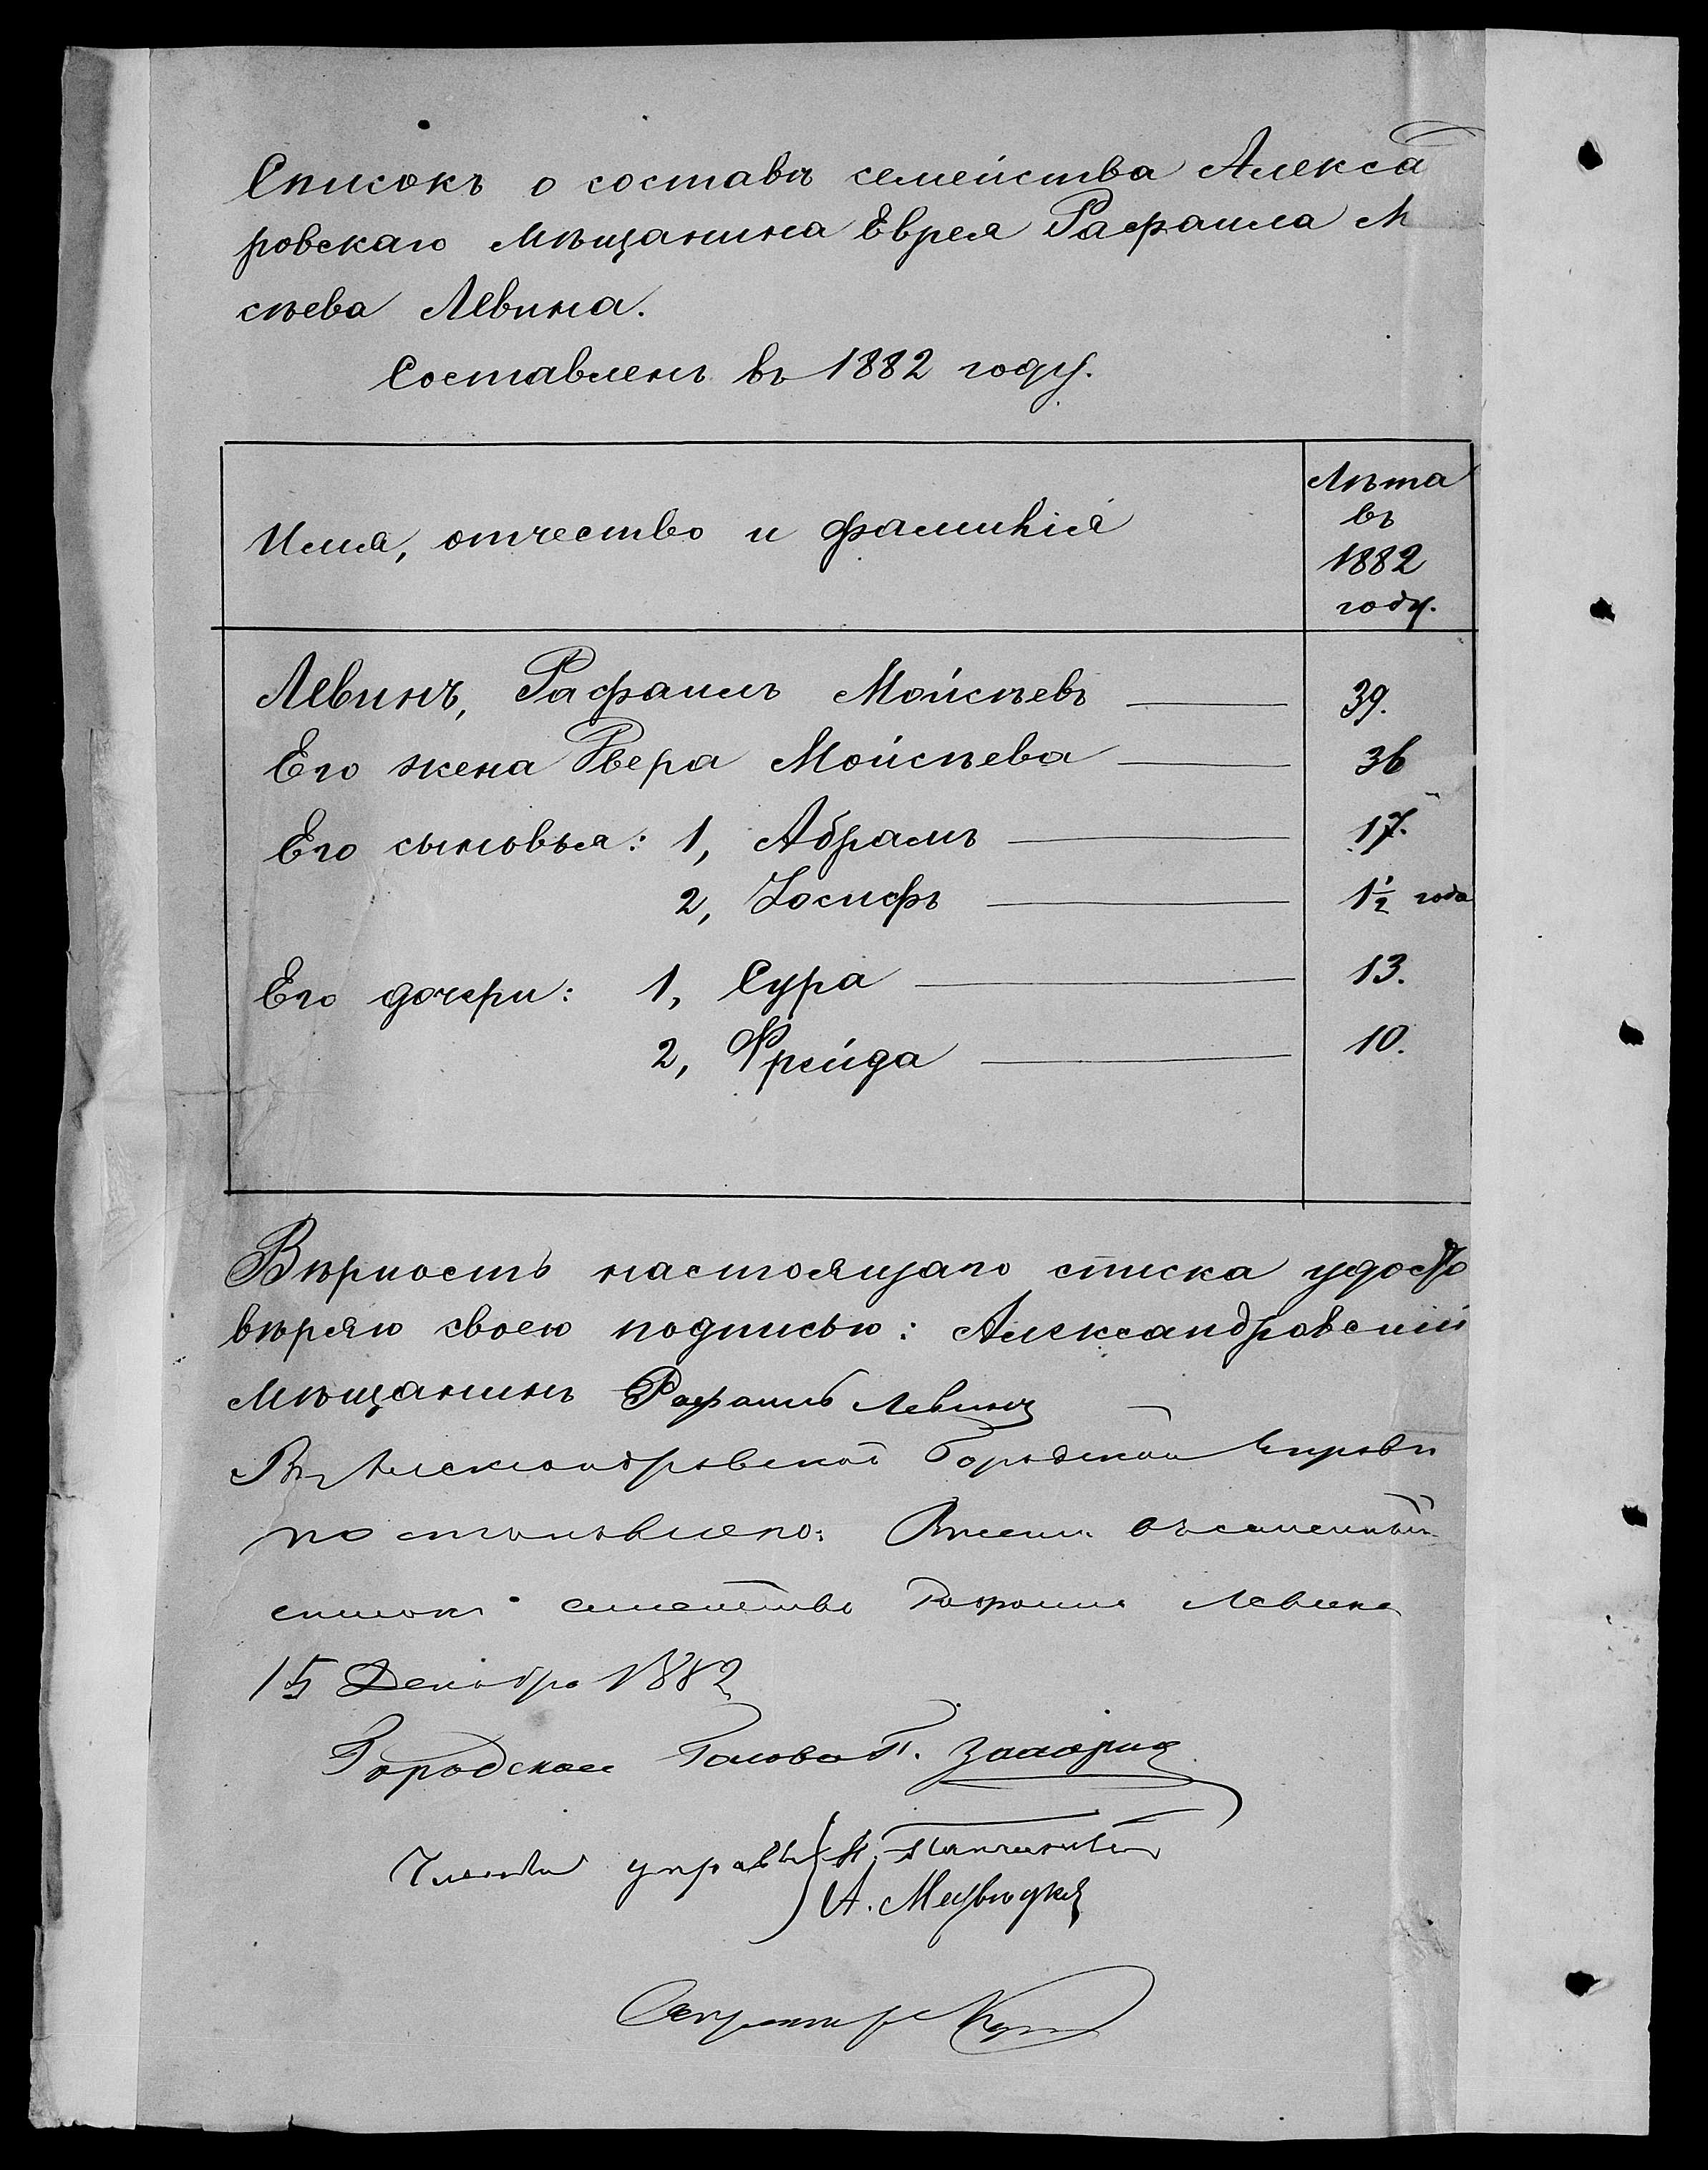 Списокъ о составѣ семейства Алекса
ровскаго мѣщанина Еврея Рафаила М
сѣева Левина.
Составленъ въ 1882 году.
Имя, отчество и фамилія
Лѣта
въ
1882
году.
Левинъ, Рафаилъ Мойсѣевъ 39.
Его жена Двера Мойсѣева 36
Его сыновья: 1, Абрамъ 17.
2, Іосифъ 1½ года
Его дочери: 1, Сура 13.
2, Фрейда 10.
Вѣрность настоящаго списка удосто
вѣряю своею подписью: Александровскій
мѣщанинъ Рафаилъ Левинъ
Въ Александровской Городской Управѣ
постановлено: Внести въ семейный
списокъ семейство Рафаила Левина
15 Декабря 1882
Городской Голова
Члены управы
А.
Секретарь